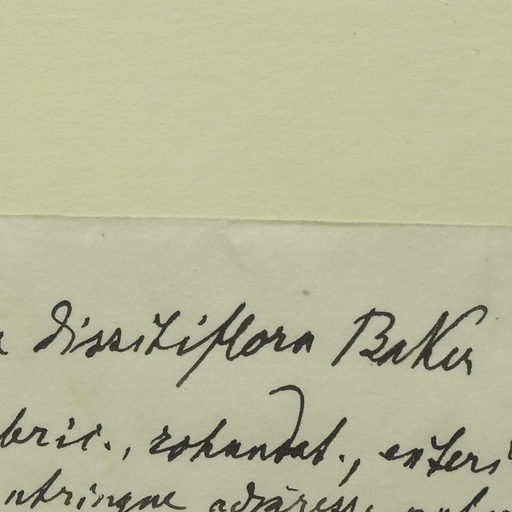 a dissitiflora Baker
bric., rotundat., exteri
utrinque adpresse